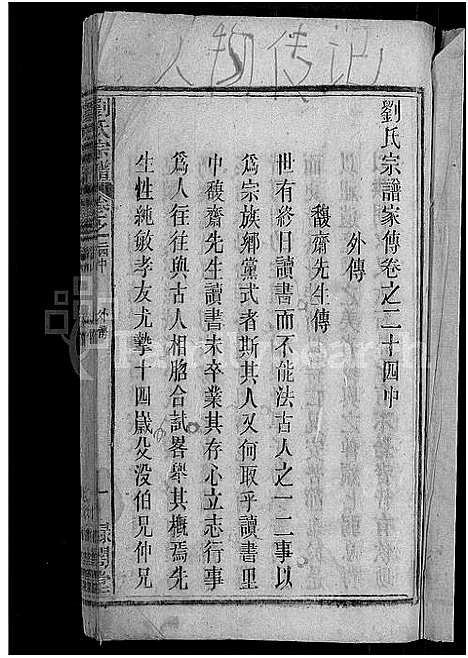 人物传记
劉氏宗譜家傳卷之二十四中
外傳
馥齋先生傳
世有終日讀書而不能法古人之一二事以
爲宗族鄉黨式者斯其人又何取乎讀書里
中馥齋先生讀書未卒業其存心立志行事
爲人往往與古人相脗合試畧舉其概焉先
生性純敏孝友尤摯十四歲父没伯兄仲兄
劉氏宗譜
外傳
一